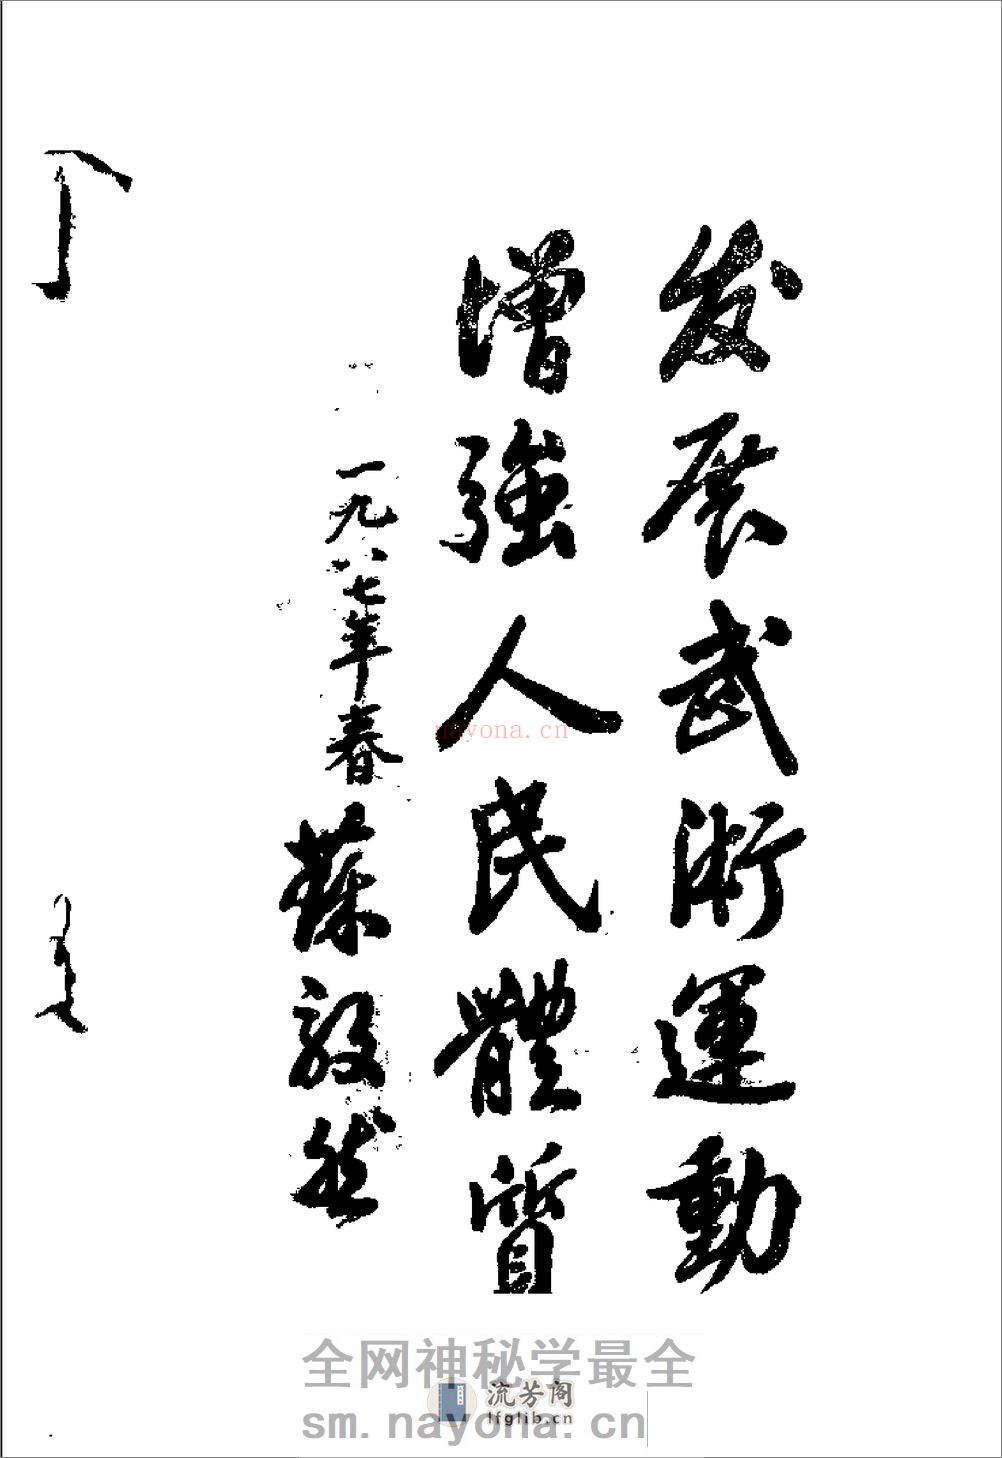 发展武術運動
增強人民體質
一九八七年春
蘇毅然
nayona.cn
全网神秘学最全
流芳阁
lfglib.cn
sm.nayona.cn